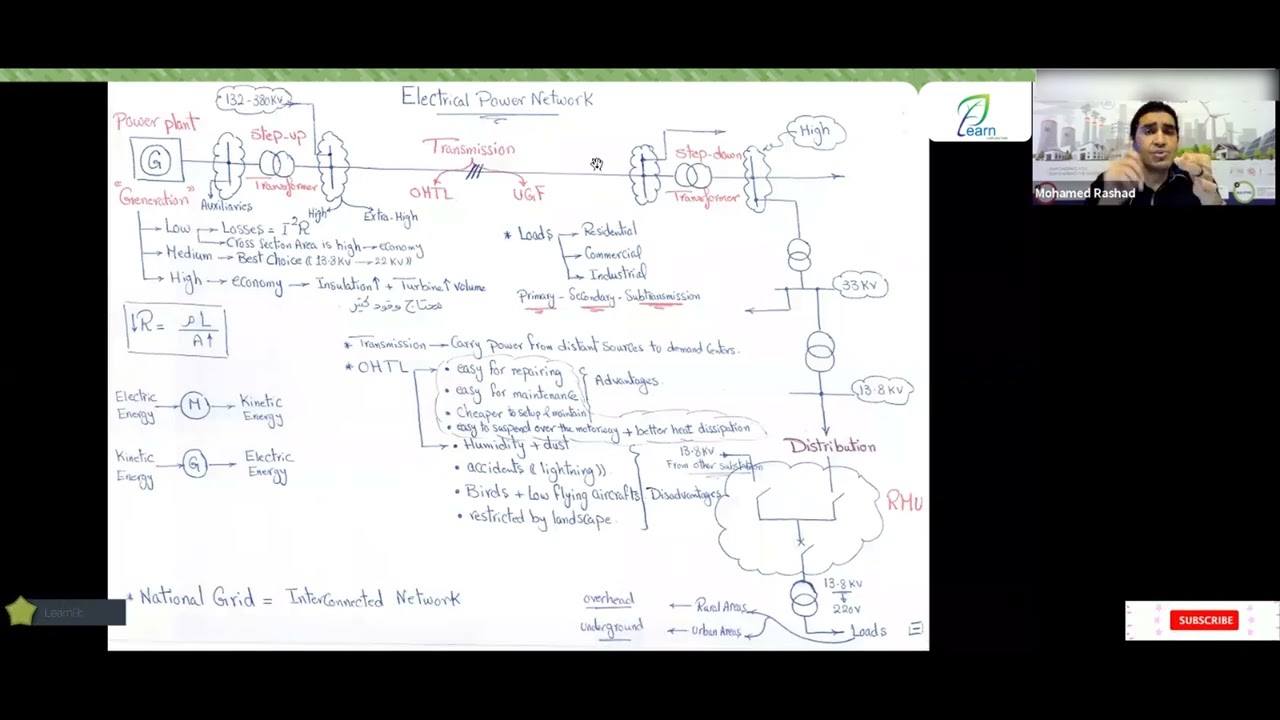 Electrical Power Network
132-380KV
Power plant
G
"Generation"
Step-up
Transformer
Auxiliaries
High
Extra-High
Transmission
OHTL
UGF
Step-down
Transformer
High
Low → Losses = I²R
Cross Section Area is high → economy
Medium → Best Choice (13.8KV → 22 KV)
High → economy → Insulation↑ + Turbine↑ volume
محتاج وقود كتير
↓R = ρL / A↑
* Loads → Residential
→ Commercial
→ Industrial
Primary - Secondary - Subtransmission
33 KV
* Transmission → Carry power from distant sources to demand centers.
* OHTL
• easy for repairing
• easy for maintenance
• Cheaper to setup & maintain
• easy to suspend over the motorway + better heat dissipation
Advantages
• Humidity + dust
• accidents (lightning))
• Birds + Low flying aircrafts
• restricted by landscape.
Disadvantages
Electric Energy → M → Kinetic Energy
Kinetic Energy → G → Electric Energy
13.8 KV
Distribution
13.8KV
From other substation
RMU
13.8 KV
↓
220V
Loads
* National Grid = InterConnected Network
overhead ← Rural Areas
underground ← Urban Areas
Learn
Mohamed Rashad
SUBSCRIBE